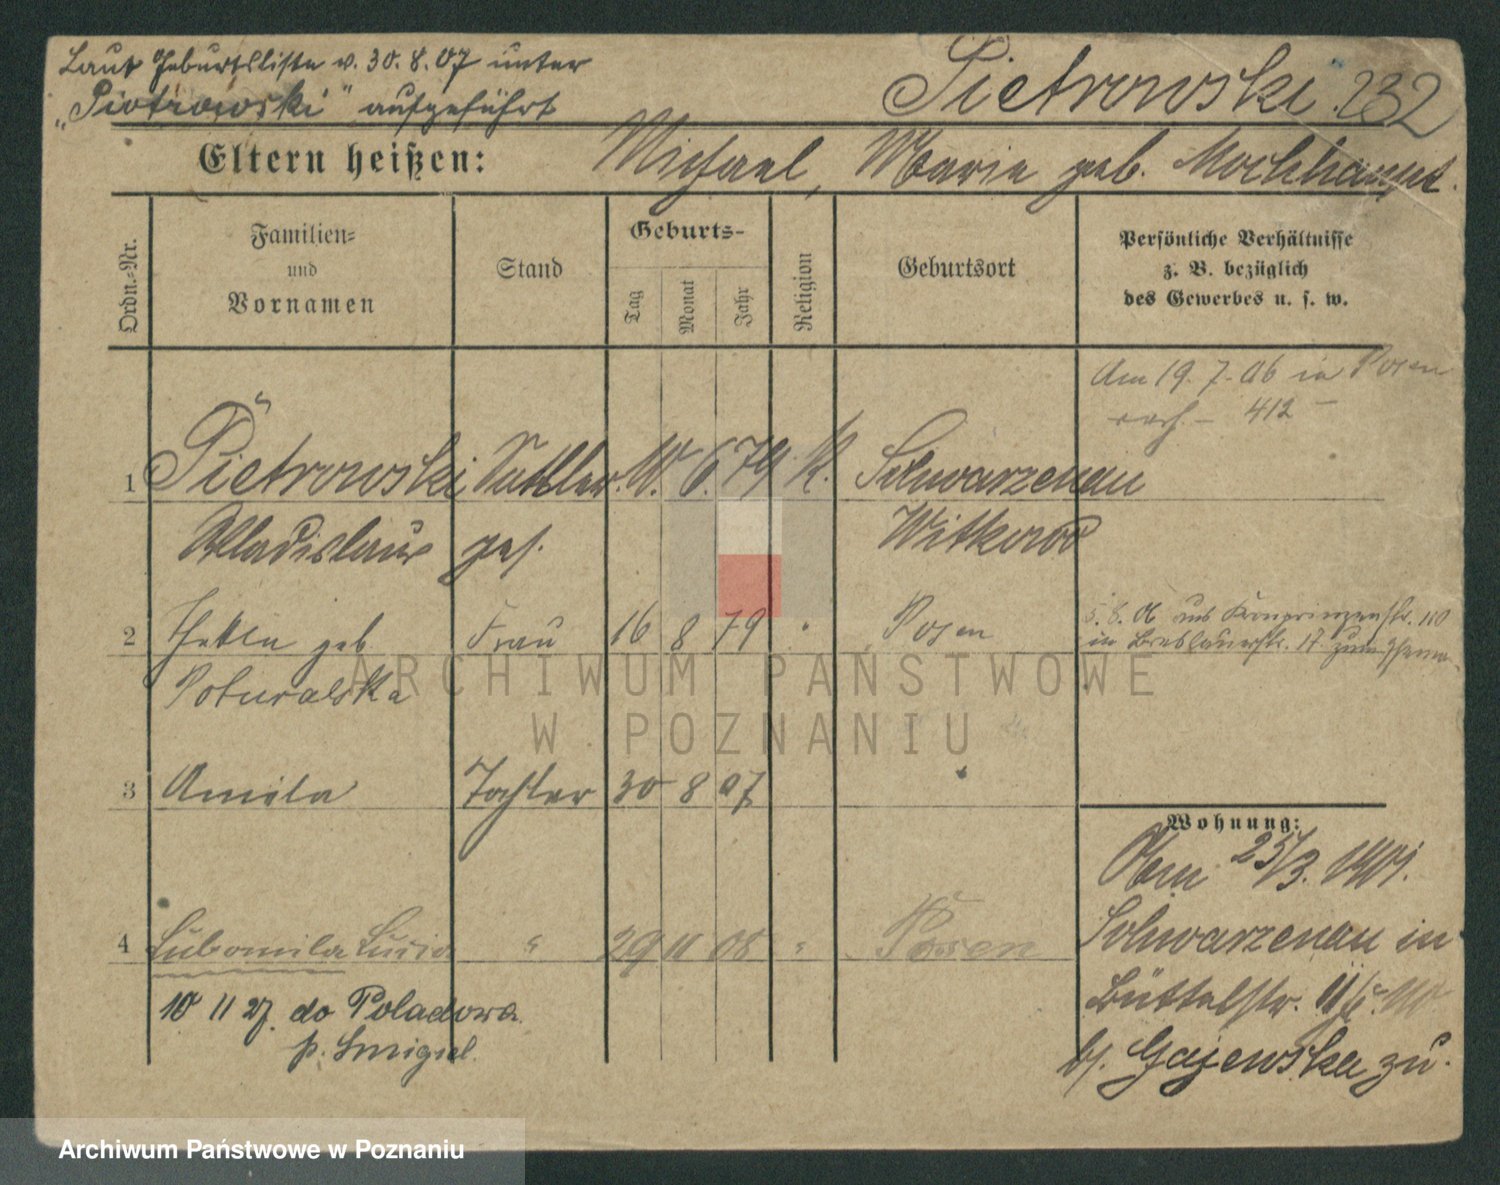 Laut Geburtsliste v. 30.8.07 unter
"Piotrowski" aufgeführt
Pietrowski. 232
Eltern heißen: Michael, Marie geb.
Ordn.-Nr.
Familien- und Vornamen
Stand
Geburts-
Tag
Monat
Jahr
Religion
Geburtsort
Persönliche Verhältnisse
z. B. bezüglich
des Gewerbes u. s. w.
Am 19. 7. 06 in Posen
412
1 Pietrowski Sattler. 10. 6. 79 K. Schwarzenau
Wladislaus ges. Witkowo
2 Thekla geb Frau 16 8 79 " Posen
Poturalska
5. 8. 06 Kronprinzenstr. 110
in Breslauerstr. 17
3 Amila Tochter 30 8 07
Wohnung:
Oben 25/3. 1901.
Schwarzenau in
Büttelstr.
b/. Gajewska zu.
4 Lubomila Lucia " 29 11 08 " Posen
10 11 27. do Poladowa
p. Smigiel.
ARCHIWUM PAŃSTWOWE
W POZNANIU
Archiwum Państwowe w Poznaniu